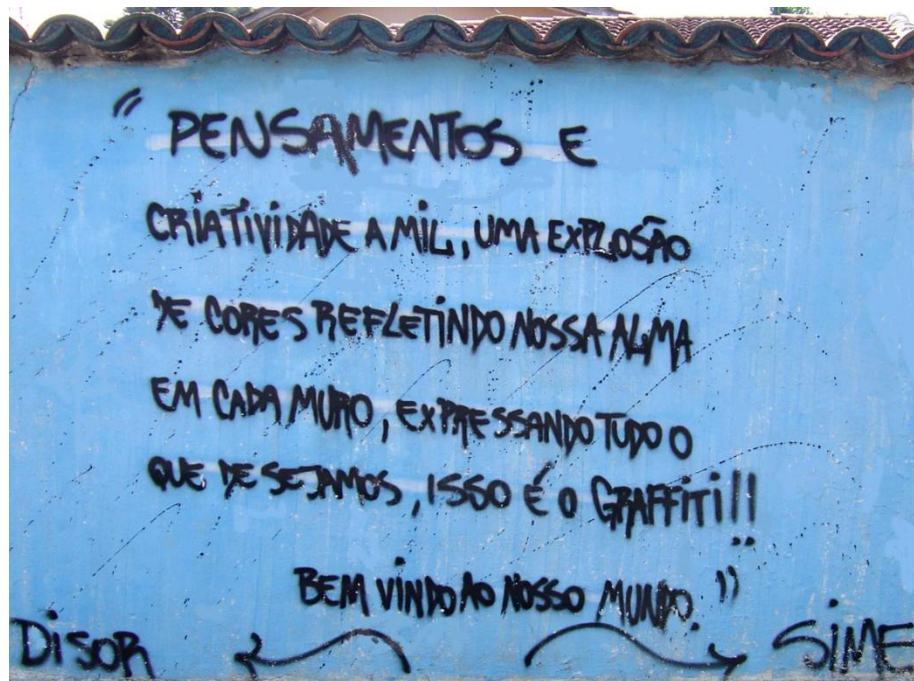 "PENSAMENTOS E
CRIATIVIDADE A MIL, UMA EXPLOSÃO
DE CORES REFLETINDO NOSSA ALMA
EM CADA MURO, EXPRESSANDO TUDO O
QUE DESEJAMOS, ISSO É O GRAFFITI!!
BEM VINDO AO NOSSO MUNDO."
DISOR SIME